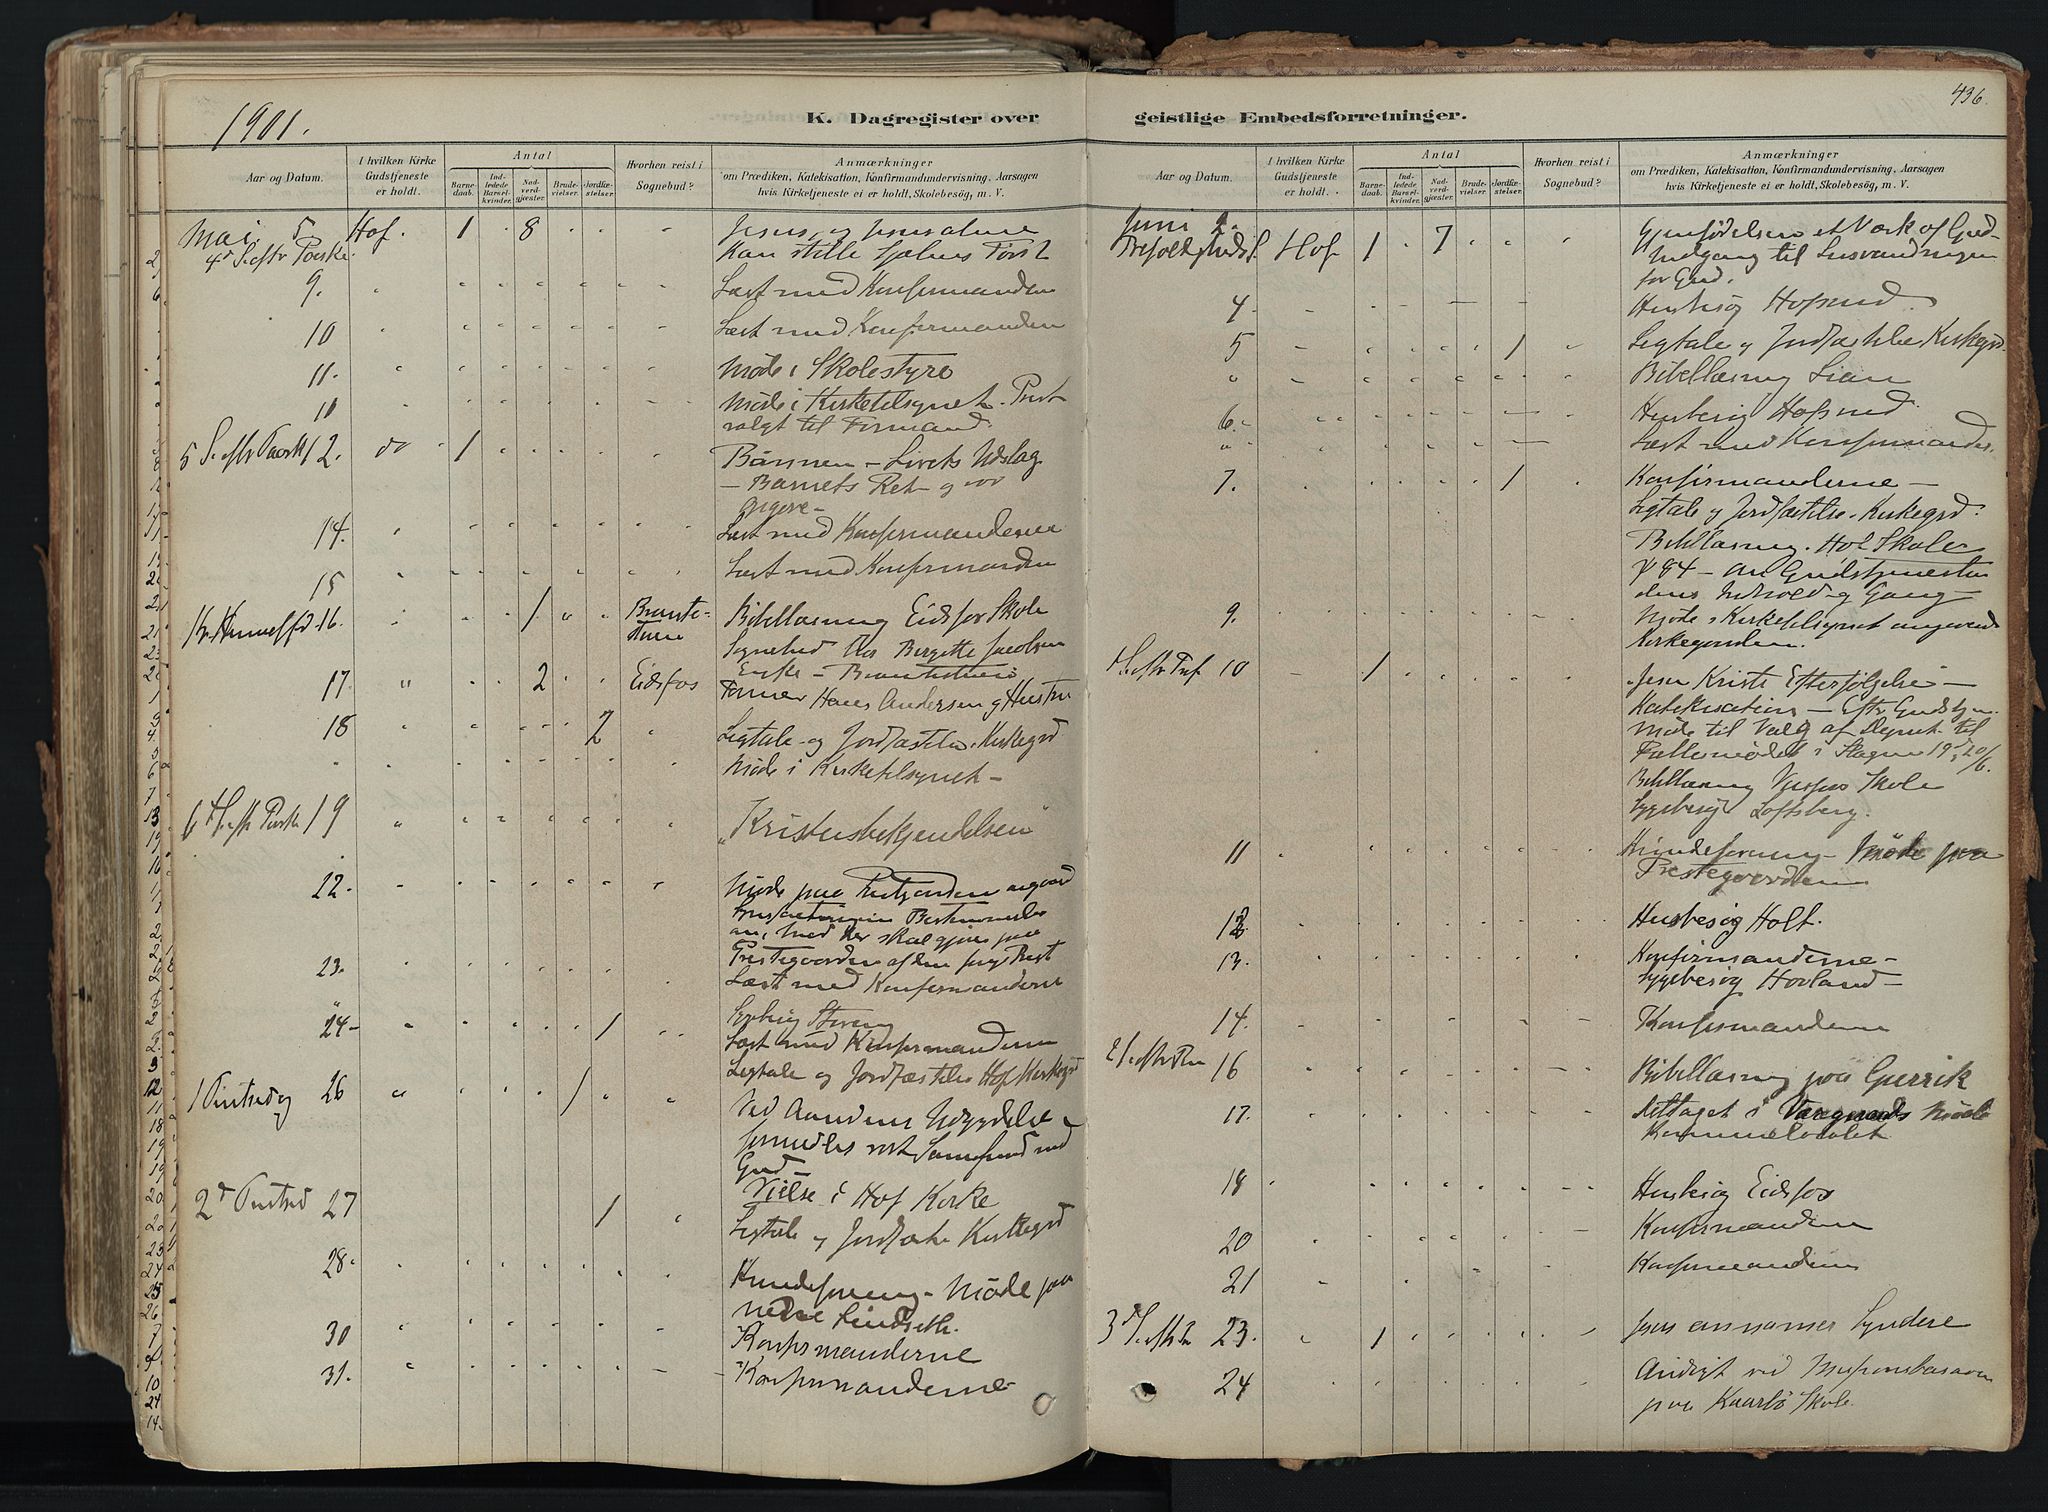 1901.
K. Dagregister over
Aar og Datum.
I hvilken Kirke Gudstjeneste er holdt.
Antal
Barnedaab.
Indledede Barselkvinder.
Nadverdgjæster.
Brudevielser.
Jordfæstelser.
Hvorhen reist i Sognebud?
Anmærkninger
om Prædiken, Katekisation, Konfirmandundervisning, Aarsagen
hvis Kirketjeneste ei er holdt, Skolebesøg, m. V.
Mai 5. Hof. 1 8 Jesus og Jesus alene
4de S. eftr Paaske. kan stille Sjælens Tørst
9. Læst med Konfirmanderne
10 Læst med Konfirmanderne
11. Møde i Skolestyre
10 Møde i Kirketilsynet. Prest
valgt til Formand.
5 S. eftr Paask 12. do 1 Bønnen – Livets Udslag
– Barnets Ret – og vor
Opgave –
14. Læst med Konfirmanderne
15 Læst med Konfirmanderne
Kr. Himmelfd 16. 1 Bibellæsning Eidsfos Skole
Sognebud hos Bergitte Jacobsen
Enke –
17. 2 Eidsfos Former Hans Andersen og Hustru
18 2 Ligtale og Jordfæstelse. Kirkegrd
Møde i Kirketilsynet –
6te S. eftr Paask 19 "Kristusbekjendelsen"
22. Møde paa Prestgaarden angaaend
hvad her skal gjøres paa
Prestegaarden af den nye Prest
23. Læst med Konfirmanderne
24 – 1 Læst med Konfirmanderne
Ligtale og Jordfæstelse Hof Kirkegrd
1 Pintsedag 26 1 Ved Aandens
formedles vort Samfund med
Gud –
Vielse i Hof Kirke
2d Pintsed 27 1 Ligtale og Jordfæstelse Kirkegrd
28. Kvindeforening – Møde paa
nedre Lindseth.
30 Konfirmanderne
31. – Konfirmanderne –
geistlige Embedsforretninger.
436.
Aar og Datum.
I hvilken Kirke Gudstjeneste er holdt.
Antal
Barnedaab.
Indledede Barselkvinder.
Nadverdgjæster.
Brudevielser.
Jordfæstelser.
Hvorhen reist i Sognebud?
Anmærkninger
om Prædiken, Katekisation, Konfirmandundervisning, Aarsagen
hvis Kirketjeneste ei er holdt, Skolebesøg, m. V.
Juni 2. Hof 1 7 Gjenfødelsen et Værk af Gud –
Indgang til
for Gud.
4 Husbesøg Hofsrud.
5 1 Ligtale og Jordfæstelse Kirkegrd.
" Bibellæsning Lian
6. – Husbesøg Hofsrud.
" Læst med Konfirmander.
7. 1 Konfirmanderne –
Ligtale og Jordfæstelse. Kirkegrd.
Bibellæsning. Hof Skole
ψ 84 – Om Gudstjenesten
dens Indhold og Gang –
9. Møde i Kirketilsynet angaaend
Kirkegaarden.
10 1 Jesu Kristi Efterfølgelse –
Katekisation – Eftr Gudstjn.
Møde til Valg af Deput. til
Fællesmødet i Skogn 19de 20/6.
Bibellæsning Skole
Sygebesøg Loftsberg.
11 Kvindeforening – Møde paa
Prestegaarden
12 Husbesøg Holt.
13. Konfirmanderne –
Sygebesøg Hovland –
14. Konfirmanderne
16 Bibellæsning paa Gurrik
17. deltaget i Værgeraads Møde
Kommunelocalet
18 Husbesøg Eidsfos
20 Konfirmanderne
21 Konfirmanderne
3d S. eftr 23. 1 Jesus annamer Syndere
24 Andagt ved Missionsbasaren
paa Kaarbø Skole.